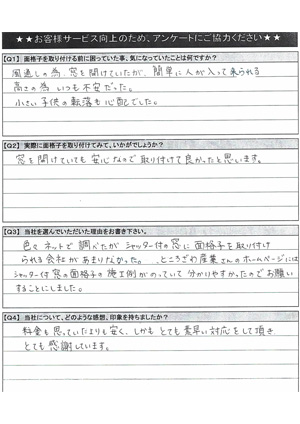 ★★お客様サービス向上のため、アンケートにご協力ください★★
【Q1】 面格子を取り付ける前に困っていた事、気になっていたことは何ですか？
風通しの為、窓を開けていたが、簡単に人が入って来られる
高さの為、いつも不安だった。
小さい子供の転落も心配でした。
【Q2】 実際に面格子を取り付けてみて、いかがでしょうか？
窓を開けていても安心なので取り付けて良かったと思います。
【Q3】 当社を選んでいただいた理由をお書き下さい。
色々ネットで調べたが シャッター付の窓に面格子を取り付け
られる会社があまりなかった。 、ところざわ産業さんのホームページには
シャッター付窓の面格子の施工例がのっていて分かりやすかったのでお願い
することにしました。
【Q4】 当社について、どのような感想、印象を持ちましたか？
料金も思っていたよりも安く、しかもとても素早い対応をして頂き
とても感謝しています。